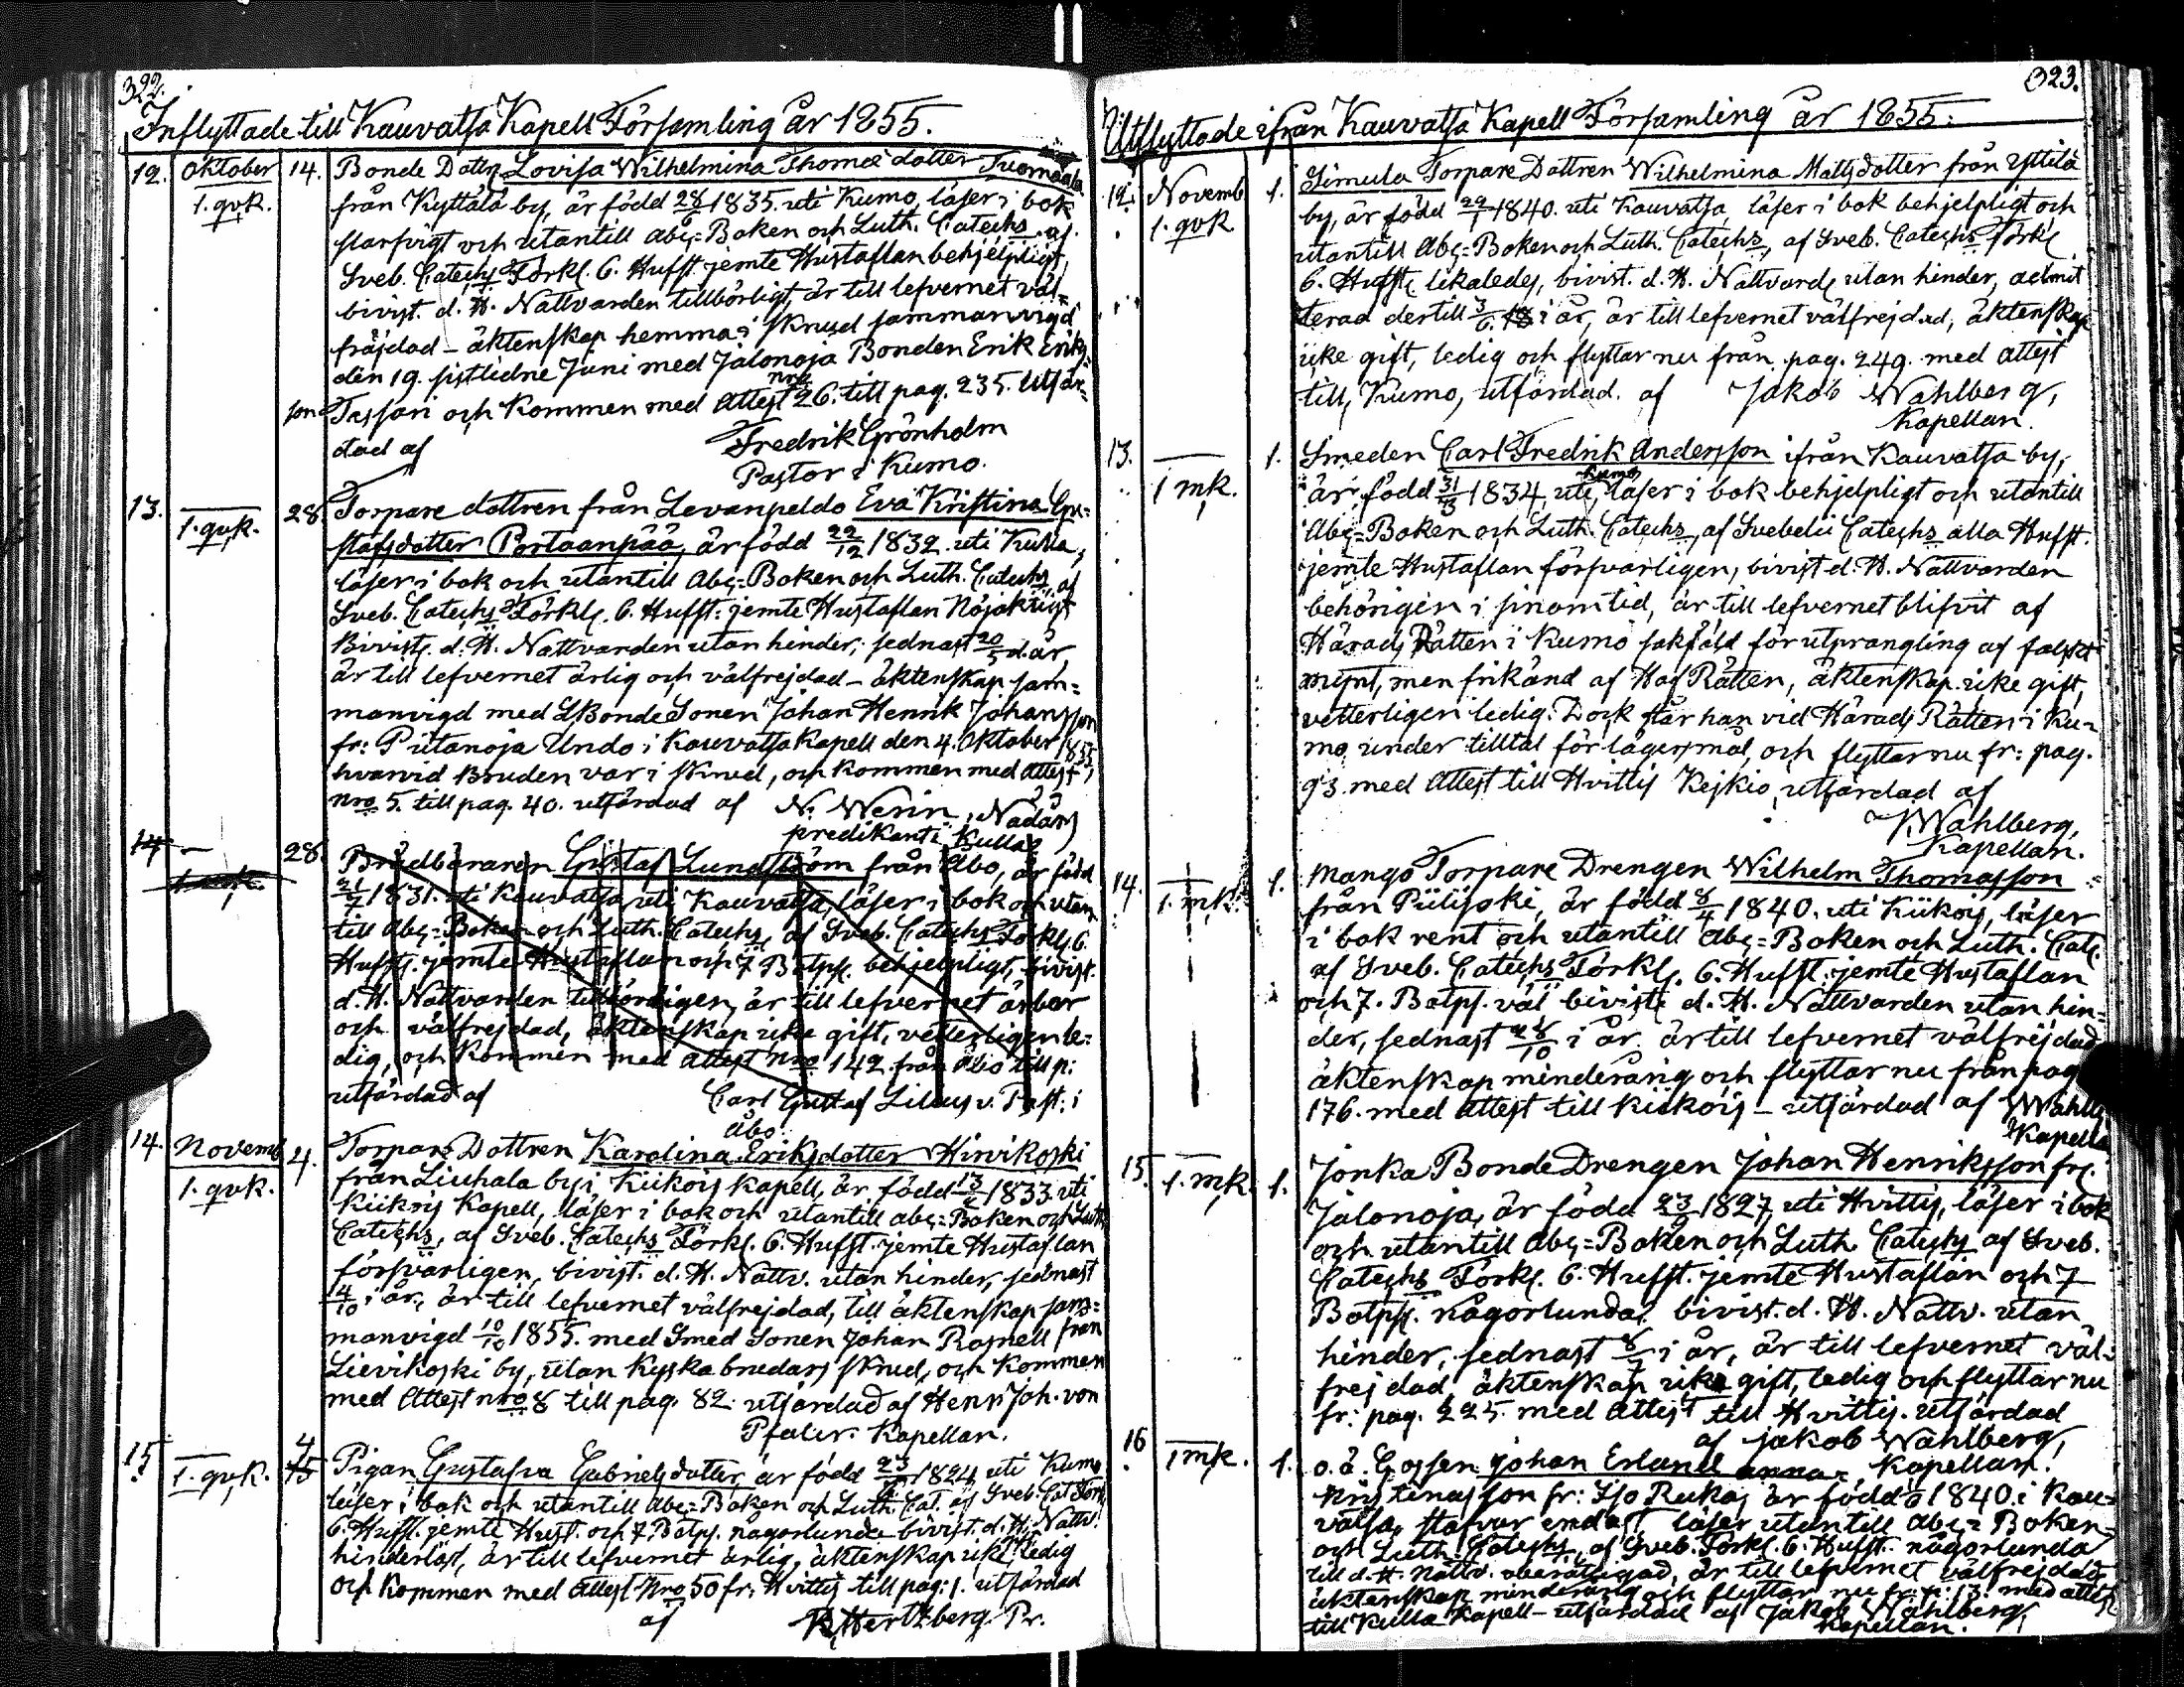 322.
Inflyttade till Kauvatsa Kapell Församling år 1855.
12. Oktober 14. Bonde Dottn Lovisa Wilhelmina Thomædotter Tuomaala
1. qvk. från Kyttälä by, är född 28/1 1835. uti Kumo, läser i bok
starfvigt och utantill Abc=Boken och Luth. Catechs af
Sveb. Catechs Förkl. 6. Hufst. jemte Hustaflan behjelpligt
bivist. d. H. Nattvarden tillbörligt, är till lefvernet väl=
fräjdad – äktenskap hemma i skrud sammanvigd
den 19. sistlidne Juni med Jalonoja Bonden Erik Eriks=
son Tassari och kommen med Attest nro 26. till pag. 235. Utfär=
dad af Fredrik Grönholm
Pastor i Kumo.
13. 28. Torpare dottren från Levanpeldo Eva Kristina Gu=
1. qvk. stafsdotter Portaanpää, är född 22/12 1832. uti Kulla,
läser i bok och utantill Abc=Boken och Luth. Catechs af
Sveb. Catechs Förkl. 6. Hufst: jemte Hustaflan Nöjaktigt
Bivist. d. H. Nattvarden utan hinder, sednast 20/5 d. år,
är till lefvernet ärlig och välfrejdad – äktenskap sam=
manvigd med LBonde Sonen Johan Henrik Johansson
fr: Piitanoja Undo i Kauvatsa Kapell den 4. Oktober 1855,
hvarvid Bruden var i skrud, och kommen med Attest
nro 5. till pag. 40. utfärdad af N. Werin, Nådårs
predikant i Kulla
14 28. Brädbäraren Gustaf Lundström från Åbo, är född
21/7 1831. uti Kauvatsa, uti Kauvatsa, läser i bok och utan
till Abc=Boken och Luth. Catechs, af Sveb. Catechs Förkl. 6.
Hufst. jemte Hustaflan och 7 Botps. behjelpligt, bivist.
d. H. Nattvarden tillbörligen, är till lefvernet ärbar
och välfrejdad, äktenskap icke gift, vetterligen le=
dig, och kommen med Attest nro 142. från Åbo till p:
utfärdad af Carl Gustaf Lilius v. Past: i
Åbo.
14. Novemb 4. Torpare Dottren Karolina Eriksdotter Hirvikoski
1. qvk. från Liuhala by i Kiikois Kapell, är född 13/2 1833. uti
Kiikois Kapell, läser i bok och utantill abc=Boken och Luth
Catechs, af Sveb. Catechs Förkl. 6. Hufst. jemte Hustaflan
försvarligen, bivist. d. H. Nattv. utan hinder, sednast
14/10 i år, är till lefvernet välfrejdad, till äktenskap sam=
manvigd 10/10 1855. med Smed Sonen Johan Rosnell från
Lievikoski by, utan kyska brudars skrud, och kommen
med Attest nro 8 till pag. 82. utfärdad af Henr. Joh. von
Pfaler Kapellan.
15. 4 Pigan Gustafva Gabrielsdotter, är född 23/ 1824 uti Kumo
1. qvk. läser i bok och utantill abc=Boken och Luth. Cat. af Sveb. Cat Förk
6. Hufst. jemte Hust. och 7. Botps. någorlunda bivist. d. H. Nattv.
hinderlöst, är till lefvernet ärlig, äktenskap icke ledig
och kommen med Attest Nro 50 fr. Hvittis till pag: 1. utfärdad
af R. Hertzberg. Pr.
323.
Utflyttade ifrån Kauvatsa Kapell Församling år 1855.
12. Novemb. 1. Simula Torpare Dottren Wilhelmina Mattsdotter från Yttilä
1. qvk by, är född 22/1 1840. uti Kauvatsa, läser i bok behjelpligt och
utantill Abc=Boken och Luth. Catechs, af Sveb. Catechs Förkl
6. Hufst. likaledes, bivist. d. H. Nattvards utan hinder, admit
terad dertill 3/6 i år, är till lefvernet välfrejdad, äktenskap
icke gift, ledig och flyttar nu från pag. 249. med Attest
till Kumo, utfärdad. af Jakob Wahlberg,
Kapellan.
13. 1. Smeden Carl Fredrik Andersson ifrån Kauvatsa by,
1 mk. är född 31/3 1834 uti Kumo, läser i bok behjelpligt och utantill
Abc=Boken och Luth. Catechs, af Svebelii Catechs alla Hufst.
jemte Hustaflan försvarligen, bivist d. H. Nattvarden
behörigen i sinom tid, är till lefvernet blifvit af
Härads Rätten i Kumo sakfäld för utprangling af falskt
mynt, men frikänd af Hof Rätten, äktenskap icke gift,
vetterligen ledig. Dock står han vid Härads Rätten i Ku=
mo under tilltal för lägersmål, och flyttar nu fr: pag.
93. med Attest till Hvittis Kejkiö, utfärdad af
J. Wahlberg,
Kapellan.
14. 1. Mango Torpare Drengen Wilhelm Thomasson
1. mk. från Piilijoki, är född 8/4 1840. uti Kiikois, läser
i bok rent och utantill Abc=Boken och Luth. Cat.
af Sveb. Catechs Förkl. 6. Hufst. jemte Hustaflan
och 7. Botps. väl bivist d. H. Nattvarden utan hin=
der, sednast 28/10 i år. är till lefvernet välfrejdad
äktenskap minderårig och flyttar nu från pag
176. med Attest till Kiikois – utfärdad af Wahlb
Kapella
15. 1. mk. 1. Jonka Bonde Drengen Johan Henriksson fr.
Jalonoja, är född 23/9 1827, uti Hvittis, läser i bok
och utantill Abc=Boken och Luth. Catechs af Sveb.
Catechs Förkl. 6. Hufst. jemte Hustaflan och 7
Botps. någorlunda bivist. d. H. Nattv. utan
hinder, sednast 8/7 i år, är till lefvernet väl=
frejdad, äktenskap icke gift, ledig och flyttar nu
fr: pag. 225. med Attest till Hvittis. utfärdad
af Jakob Wahlberg,
Kapellan.
16 1 mk. 1. o. ä. Gossen Johan Erland Anna
Kristinasson fr: Sjö Rukas är född 1840. i Kau=
vatsa, stafvar endast läser utantill Abc=Boken
och Luth. Catechs, af Sveb. Förkl. 6. Hufst. någorlunda
till d. H. Nattv. oberättigad, är till lefvernet välfrejdad,
äktenskap minderårig och flyttar nu fr. p. 13. med attest
till Kulla Kapell – utfärdad af Jakob Wahlberg,
Kapellan.